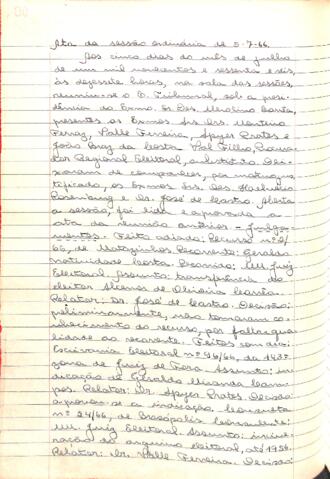 Ata da sessão ordinária de 5-7-66.
Aos cinco dias do mês de julho
de um mil novecentos e sessenta e seis,
às dezessete horas, na sala das sessões,
reuniu-se o E. Tribunal, sob a presi-
dência do Exmo. Sr. Des.
presentes os Exmos Srs. Drs. Martins
Ferraz, Valle Ferreira, Apyer Prates e
João Braz da Costa Val Filho, Procura-
dor Regional Eleitoral, substituto. Dei-
xaram de comparecer, por motivo jus-
tificado, os Exmos Srs. Des. Helvécio
Rosenburg e Dr. José de Castro. Aberta
a sessão, foi lida e aprovada a
ata da reunião anterior - Julga-
mentos. Feito adiado: Recurso nº
66, de Matozinhos Recorrente: Geraldo
Natividade Costa. Recorrido: MM. Juiz
Eleitoral. Assunto: transferência do
eleitor de Oliveira
Relator: Dr. José de Castro. Decisão:
preliminarmente, não tomaram co-
nhecimento do recurso, por falta qua-
lidade ao recorrente. Feitos em dia:
Escrivania Eleitoral nº 96/66, da 143ª
zona de Juiz de Fora. Assunto: in-
dicação de Geraldo Miranda Cam-
pos. Relator: Dr. Apyer Prates. Decisão:
aprovou-se a indicação. Consulta
nº 24/66, de Brasópolis Consulente:
MM. Juiz Eleitoral. Assunto: incine-
ração do arquivo eleitoral, até 1954.
Relator: Dr. Valle Ferreira. Decisão: